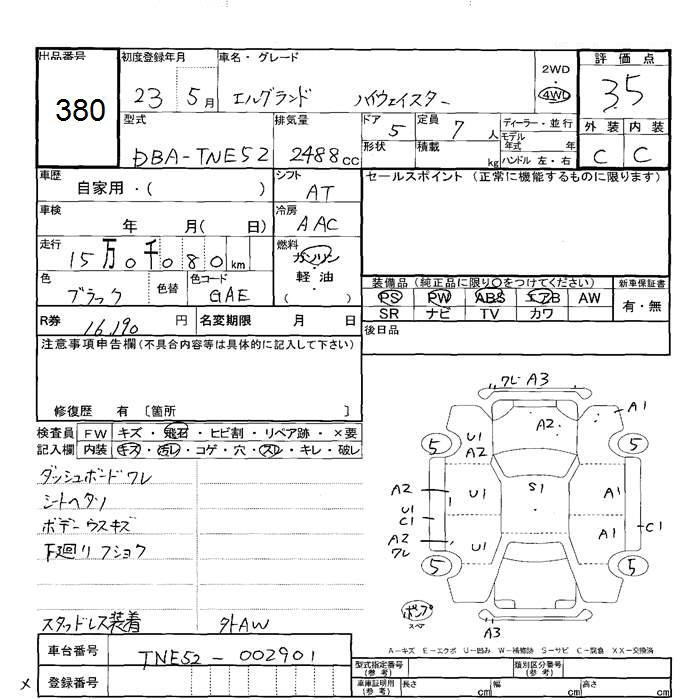 出品番号 初度登録年月 車名・グレード 評価点
380 23 5月 エルグランド ハイウェイスター 2WD 4WD 3.5
型式 排気量 ドア 定員 ディーラー・並行 外装 内装
DBA-TNE52 2488cc 5 7人 モデル年式 年 C C
形状 積載 kg ハンドル 左・右
車歴 シフト セールスポイント (正常に機能するものに限ります)
自家用・( ) AT
車検 冷房
年 月( 日) AAC
走行 燃料
15万0千080km ガソリン・軽油・( )
色 色替 色コード 装備品 (純正品に限り○をつけてください) 新車保証書
ブラック GAE PS PW ABS エアB AW 有・無
SR ナビ TV カワ
R券 16,190円 名変期限 月 日 後日品
注意事項申告欄(不具合内容等は具体的に記入して下さい)
修復歴 有 〔箇所 〕
検査員 FW キズ・飛石・ヒビ割・リペア跡・×要
記入欄 内装 キズ・汚レ・コゲ・穴・スレ・キレ・破レ
ダッシュボードワレ
シートヘタリ
ボデーウスキズ
下廻リフショク
スタッドレス装着 外AW
ワレ A3
A1
A2
5 U1 A2 5
A2 U1 S1 A1
U1 C1
A2 ワレ U1 A1 C1
5 5
ポンプ
スペア
A3
A-キズ E-エクボ U-凹み W-補修跡 S-サビ C-腐食 XX-交換済
車台番号 TNE52-002901
型式指定番号(参考) 類別区分番号(参考)
× 登録番号
車庫証明用(参考) 長さ cm 幅 cm 高さ cm